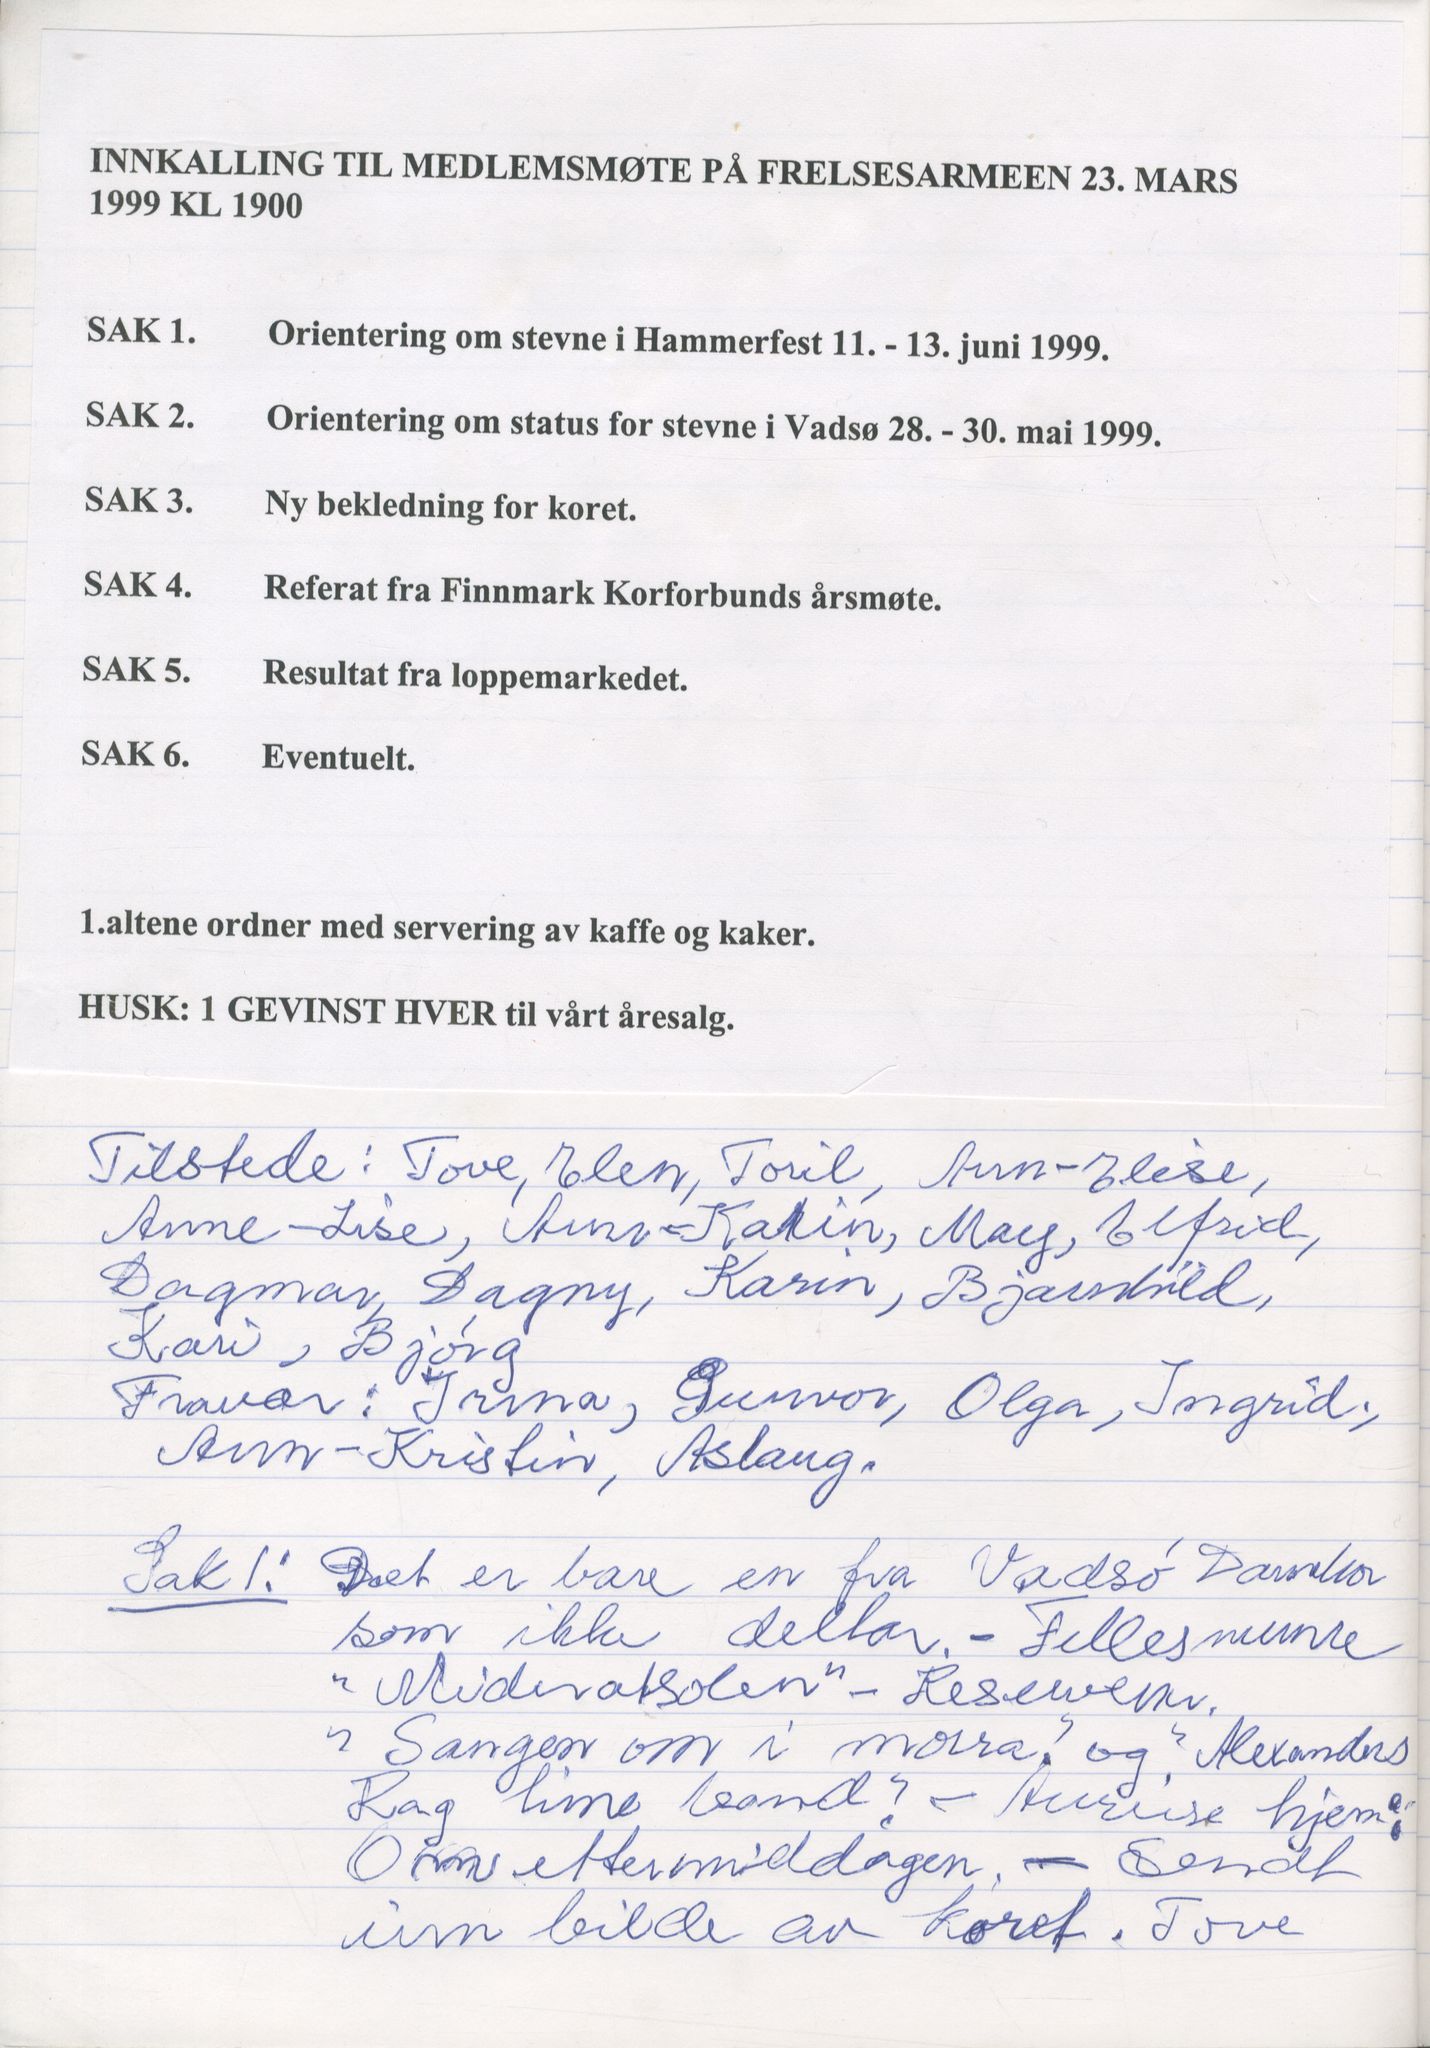 INNKALLING TIL MEDLEMSMØTE PÅ FRELSESARMEEN 23. MARS
1999 KL 1900
SAK 1. Orientering om stevne i Hammerfest 11. - 13. juni 1999.
SAK 2. Orientering om status for stevne i Vadsø 28. - 30. mai 1999.
SAK 3. Ny bekledning for koret.
SAK 4. Referat fra Finnmark Korforbunds årsmøte.
SAK 5. Resultat fra loppemarkedet.
SAK 6. Eventuelt.
1.altene ordner med servering av kaffe og kaker.
HUSK: 1 GEVINST HVER til vårt åresalg.
Tilstede: Tove, Elen, Toril, Ann-Elise,
Anne-Lise, Ann-Katrin, May, Elfrid,
Dagmar, Dagny, Karin, Bjarnhild,
Kari, Bjørg
Fravær: Irma, Gunvor, Olga, Ingrid,
Ann-Kristin, Aslaug.
Sak 1: Det er bare en fra Vadsø Damekor
som ikke deltar. - Fellesnumre
"Midnatsolen" - Reservenr.
"Sangen om i morra" og "Alexanders
Rag time band" - Avreise hjem:
Om ettermiddagen. - Sendt
inn bilde av koret. Tove